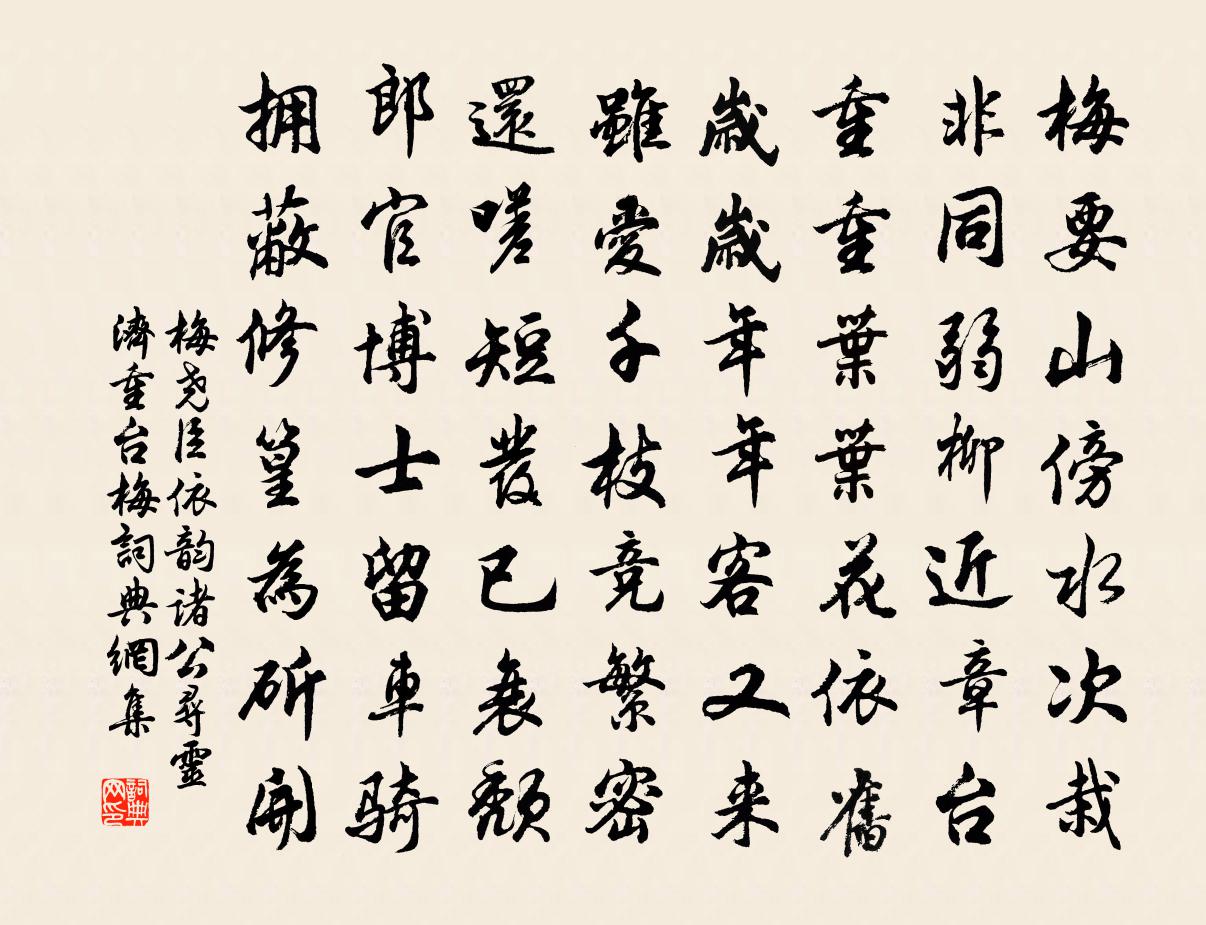 梅要山傍水次栽
非同弱柳近章台
重重葉葉花依舊
歲歲年年客又来
雖愛千枝竞繁密
還嗟短發已衰颓
郎官博士留車騎
拥蔽修篁為斫開
梅尧臣依韵诸公尋靈
濟重台梅詞典網集
詞典网印